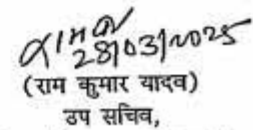 28/03/2025
(राम कुमार यादव)
उप सचिव,